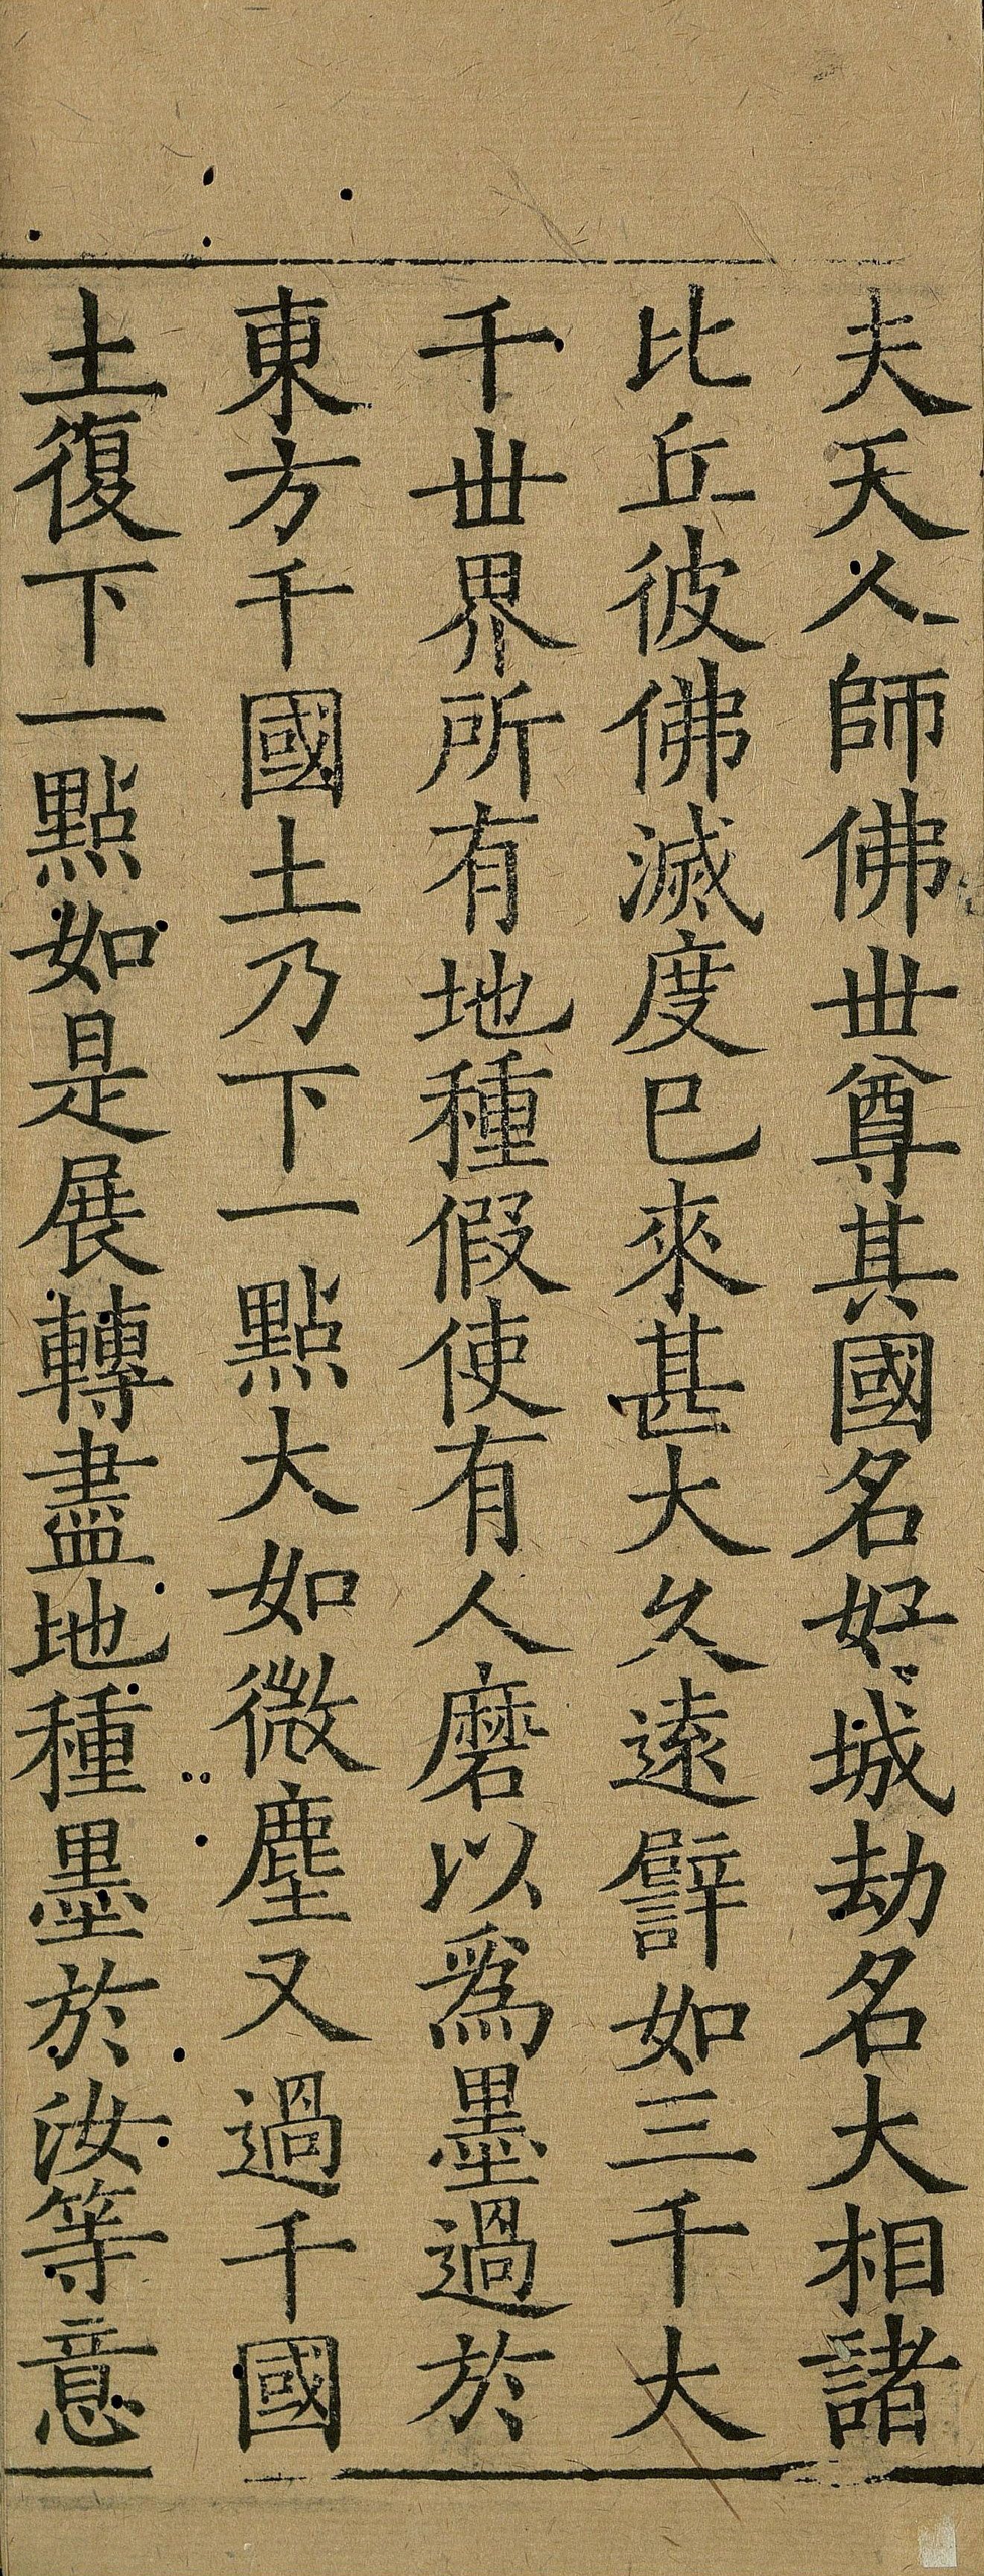 夫天人師佛丗尊其國名好城劫名大相諸
比丘彼佛滅度已來甚大久遠譬如三千大
千丗界所有地種假使有人磨以爲墨過於
東方千國土乃下一點大如微塵又過千國
土復下一點如是展轉盡地種墨於汝等意